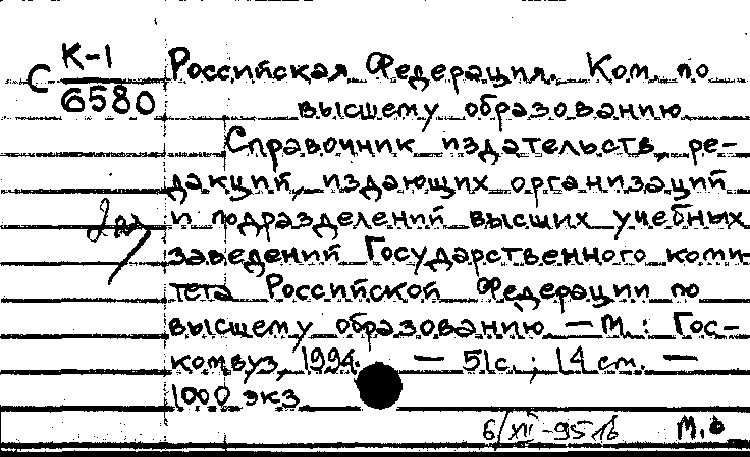 С К-1
6580
Российская Федерация. Ком. по
высшему образованию
Справочник издательств, ре-
дакций, издающих организаций
и подразделений высших учебных
заведений Государственного коми-
тета Российской Федерации по
высшему образованию. — М.: Гос-
комвуз, 1994. — 51с.; 14 см. —
1000 экз
6/XII-95